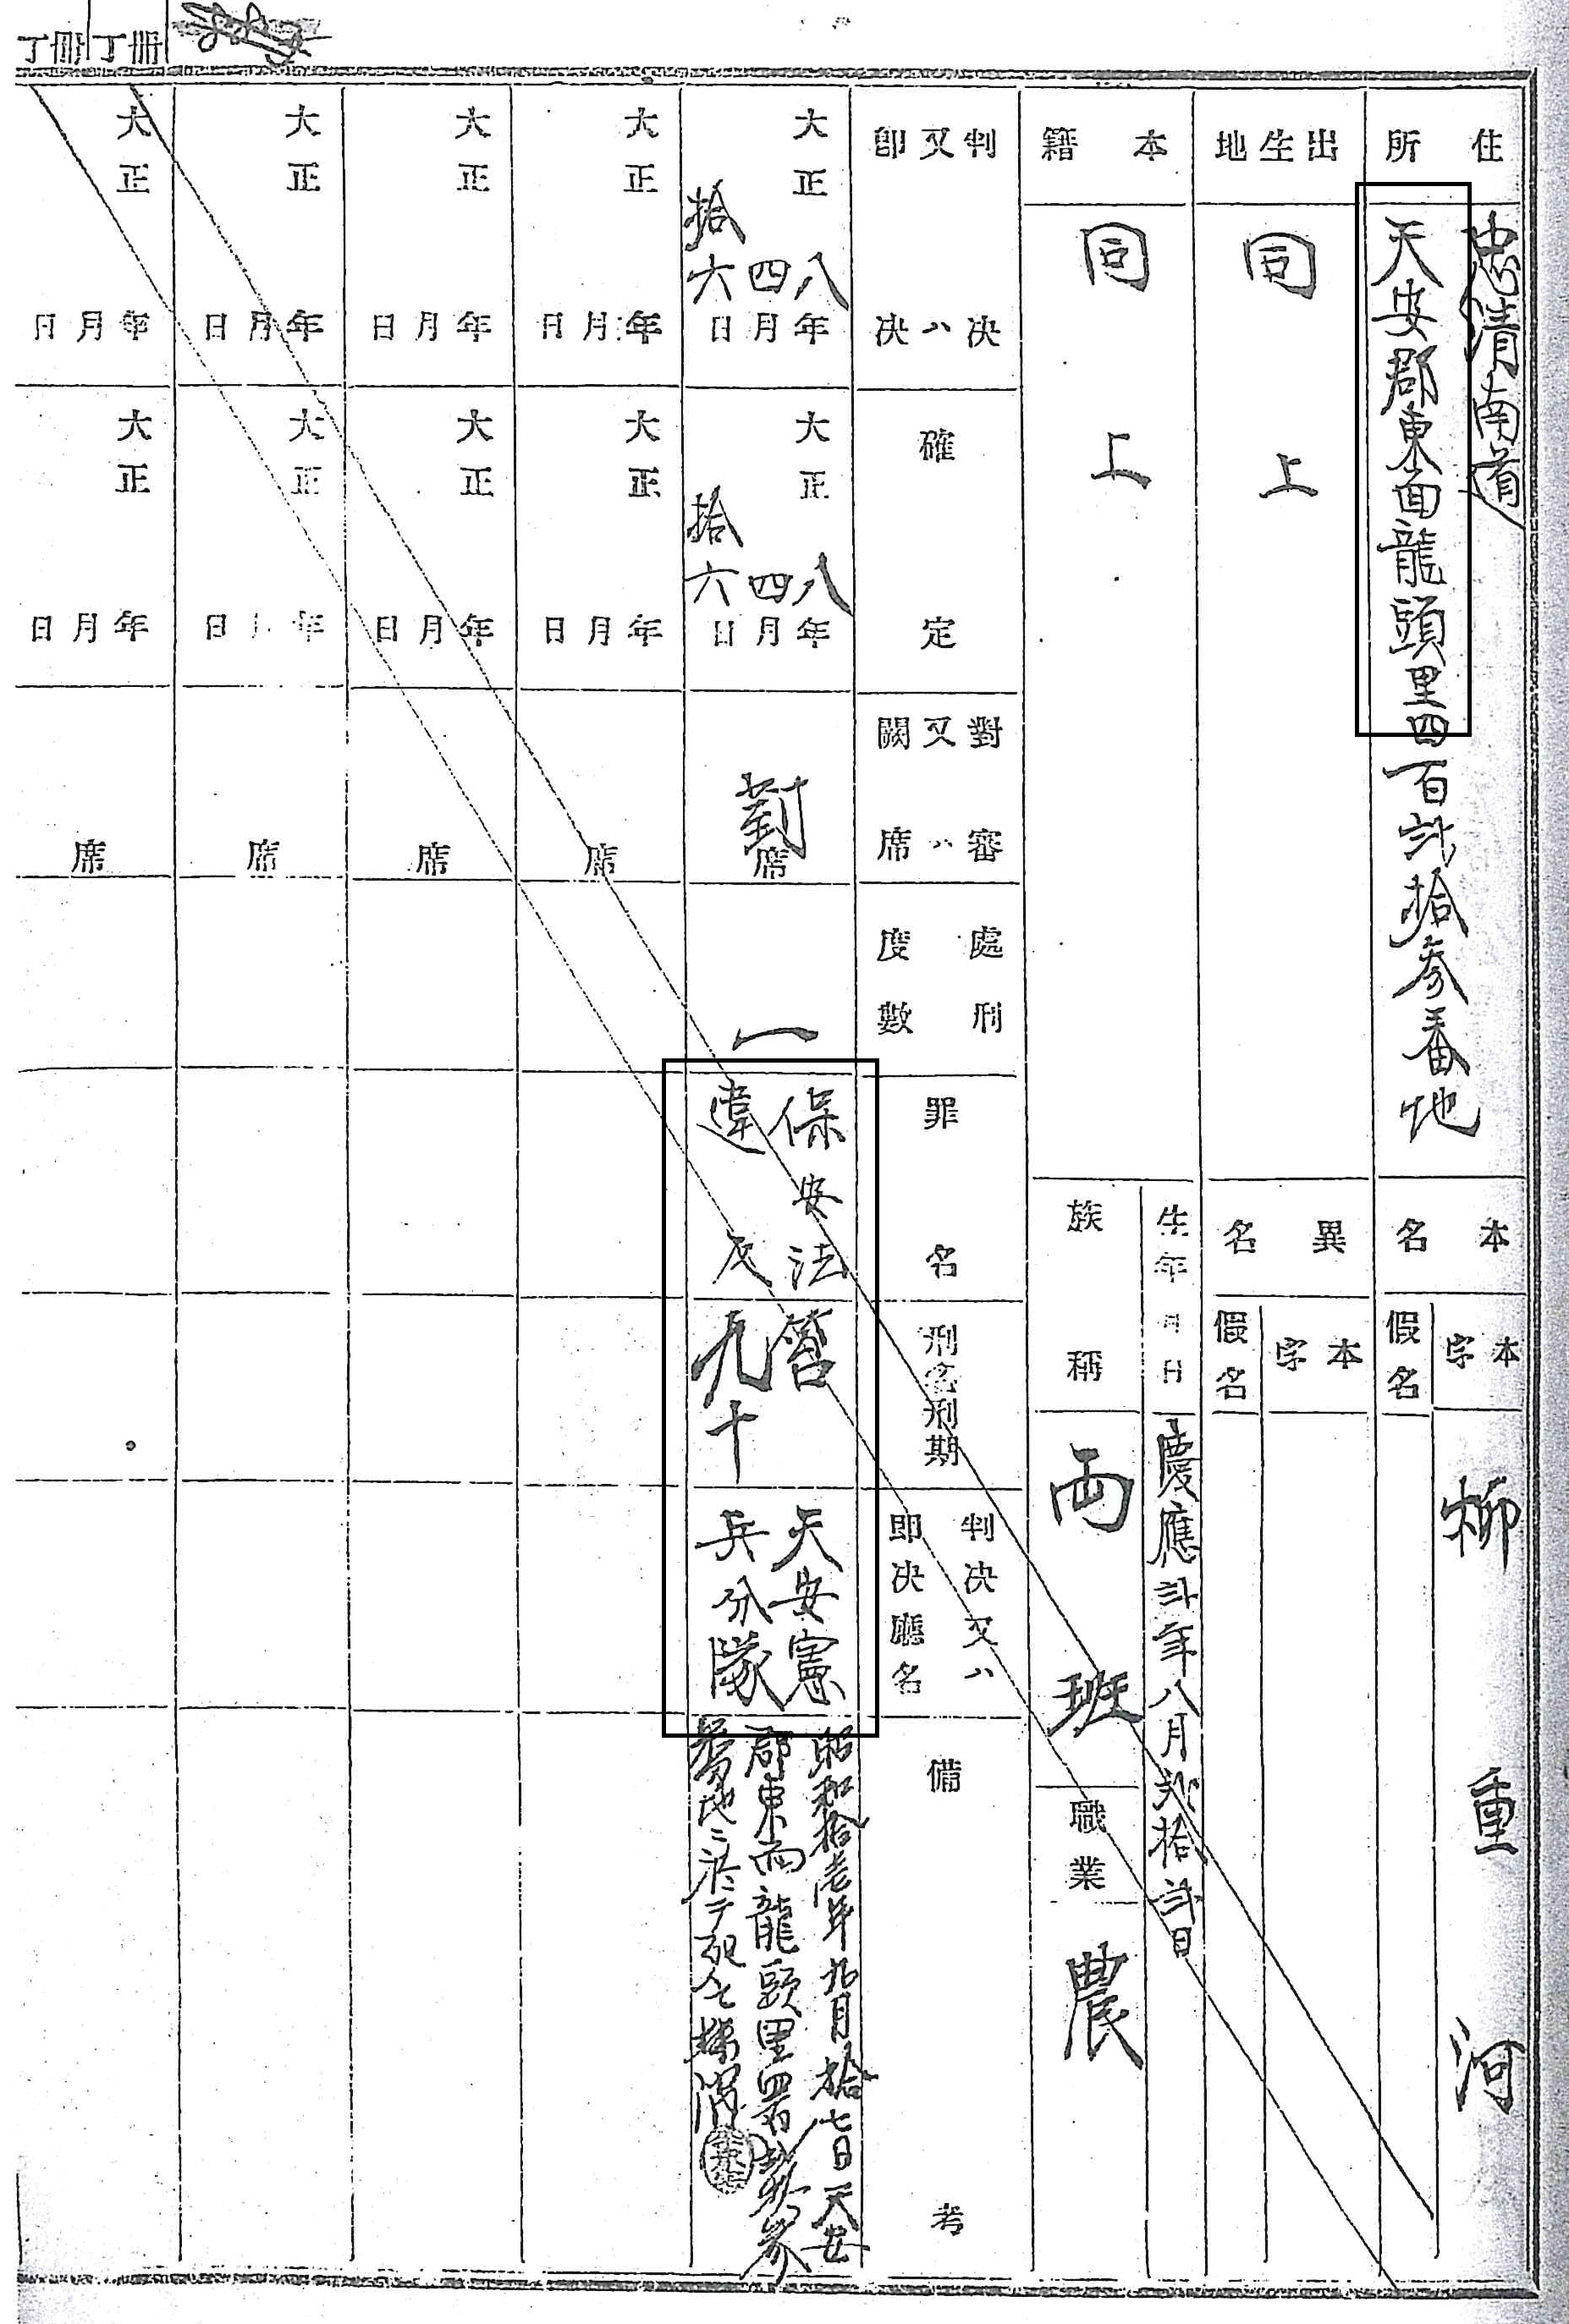 丁冊
丁冊
住所
忠清南道
天安郡東面龍頭里四百弐拾参番地
出生地
同上
本籍
同上
本名
本字
柳重河
假名
異名
本字
假名
生年月日
慶應弐年八月弐拾弐日
族稱
両班
職業
農
判決又ハ即決
確定
對審又ハ闕席
處刑度數
罪名
刑名刑期
判決又ハ即決廳名
備考
大正八年四月拾六日
大正八年四月拾六日
對席
一
保安法
違反
笞
九十
天安憲
兵分隊
昭和拾壱年九月拾七日天安
郡東面龍頭里四百弐拾参
番地ニ於テ死亡
大正 年月日
大正 年月日
席
大正 年月日
大正 年月日
席
大正 年月日
大正 年月日
席
大正 年月日
大正 年月日
席